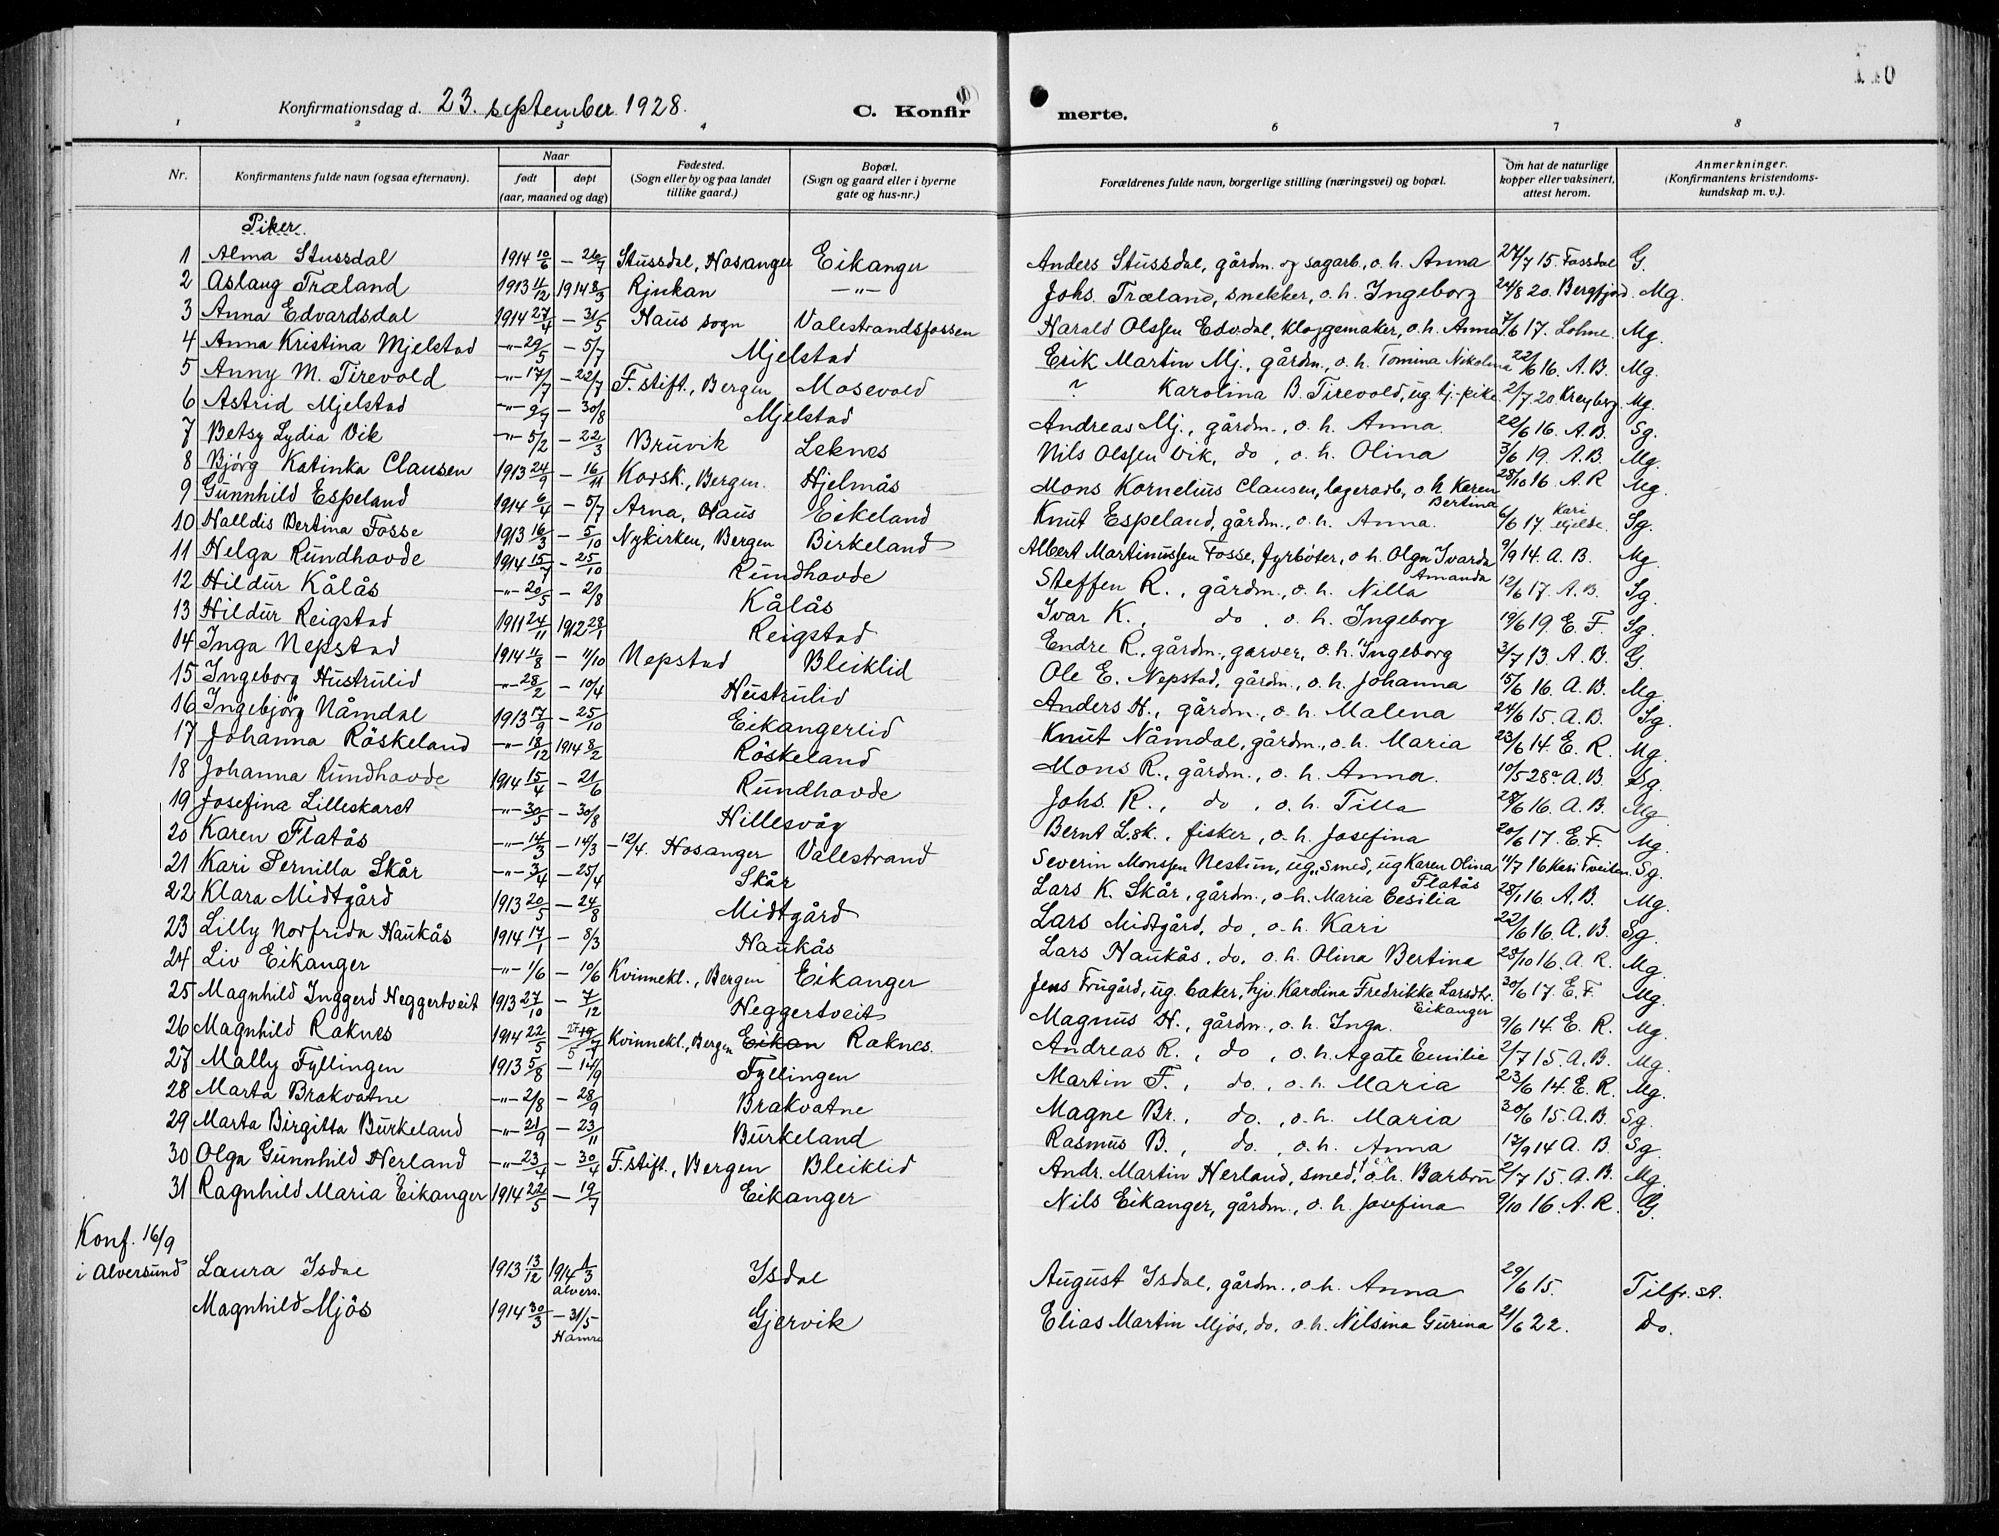 Konfirmationsdag d. 23. september 1928. C. Konfirmerte.
1 2 3 4 6 7 8
Nr. Konfirmantens fulde navn (ogsaa efternavn). Naar født døpt (aar, maaned og dag) Fødested. (Sogn eller by og paa landet tillike gaard.) Bopæl. (Sogn og gaard eller i byerne gate og hus-nr.) Forældrenes fulde navn, borgerlige stilling (næringsvei) og bopæl. Om hat de naturlige kopper eller vaksinert, attest herom. Anmerkninger. (Konfirmantens kristendomskundskap m. v.).
Piker.
1 Alma Stussdal 1914 10/6 — 26/7 Stussdal, Hosanger Eikanger Anders Stussdal, gårdm. og sagarb., o. h. Anna 27/7 15. Fossdal G.
2 Aslaug Træland 1913 11/12 1914 8/3 Rjukan —"— Johs. Træland, snekker, o. h. Ingeborg 24/8 20. Bergfjord. Mg.
3 Anna Edvardsdal 1914 27/4 — 31/5 Haus sogn Valestrandsfossen Harald Olssen Edvdal, kloggemaker, o. h. Anna 7/6 17. Lohne. Mg.
4 Anna Kristina Mjelstad —"— 29/5 — 5/7 Mjelstad Erik Martin Mj., gårdm., o. h. Tomina Nikolina 22/6 16. A. B. Mg.
5 Anny M. Tirevold —"— 17/7 — 22/7 F. stift., Bergen Mosevold ? Karolina B. Tirevold, ug tj.-pike 2/7 20 Kreyberg. Mg.
6 Astrid Mjelstad —"— 9/7 — 30/8 Mjelstad Andreas Mj., gårdm., o. h. Anna. 22/6 16. A. B. Sg.
7 Betsy Lydia Vik —"— 5/2 — 22/3 Bruvik Leknes Nils Olssen Vik, do, o. h. Olina 3/6 19. A. B. Mg.
8 Bjørg Katinka Clausen 1913 24/9 — 16/11 Korsk., Bergen. Hjelmås Mons Kornelius Clausen, lagerarb, o. h. Karen Bertina 28/10 16. A. R Mg.
9 Gunnhild Espeland 1914 6/4 — 5/7 Arna, Haus Eikeland Knut Espeland, gårdm., o. h. Anna. 6/6 17. Kari Hjelde. Sg.
10 Halldis Bertina Fosse 1913 16/3 — 5/10 Nykirken, Bergen Birkeland Albert Martinussen Fosse, fyrbøter, o. h. Olga Ivarda Amanda 9/9 14. A. B. Mg.
11 Helga Rundhovde 1914 15/7 — 25/10 Rundhovde Steffen R., gårdm., o. h. Nilla 12/6 17. A. B. Sg.
12 Hildur Kålås —"— 20/5 — 2/8 Kålås Ivar K., do, o. h. Ingeborg 19/6 19. E. F. Sg.
13 Hildur Reigstad 1911 24/11 1912 28/1 Reigstad Endre R., gårdm., garver, o. h. Ingeborg 3/7 13. A. B. G.
14 Inga Nepstad 1914 11/8 — 11/10 Nepstad Bleiklid Ole E. Nepstad, gårdm., o. h. Johanna 15/6 16. A. B. Mg.
15 Ingeborg Hustrulid —"— 28/2 — 10/4 Hustrulid Anders H., gårdm., o. h. Malena 24/6 15. A. B. Sg.
16 Ingebjørg Nåmdal 1913 17/9 — 25/10 Eikangerlid Knut Nåmdal, gårdm., o. h. Maria 23/6 14. E. R. Mg.
17 Johanna Röskeland —"— 18/12 1914 8/2 Röskeland Mons R., gårdm., o. h. Anna. 10/5 28. A. B. Sg.
18 Johanna Rundhovde 1914 15/4 — 21/6 Rundhovde Johs. R., do, o. h. Tilla 28/6 16. A. B. Mg.
19 Josefina Lilleskaret —"— 30/5 — 30/8 Hillesvåg Bernt L.sk., fisker, o. h. Josefina 20/6 17. E. F. Mg.
20 Karen Flatås —"— 14/3 — 14/3 — 12/4. Hosanger Valestrand Severin Monssen Nestun, ug., smed, ug Karen Olina Flatås 11/7 16 Kari Tveiten. Sg.
21 Kari Pernilla Skår —"— 3/4 — 25/4 Skår Lars K. Skår, gårdm., o. h. Maria Cesilia 28/1 16. A. B. Mg.
22 Klara Midtgård 1913 20/5 — 24/8 Midtgård Lars Midtgård, do, o. h. Kari 22/6 16. A. B. Sg.
23 Lilly Norfrida Haukås 1914 17/1 — 8/3 Haukås Lars Haukås, do, o. h. Olina Bertina 28/10 16. A. R. Mg.
24 Liv Eikanger —"— 1/6 — 10/6 Kvinnekl., Bergen Eikanger Jens Frugård, ug. baker, hjv. Karolina Fredrikke Larsdtr. Eikanger 30/6 17. E. F. Mg.
25 Magnhild Inggerd Heggertveit 1913 27/10 — 7/12 Heggertveit Magnus H., gårdm., o. h. Inga. 9/6 14. E. R. Mg.
26 Magnhild Raknes 1914 22/5 — 27/5 19/7 Kvinnekl., Bergen Eikan Raknes. Andreas R., do, o. h. Agate Emilie 2/7 15. A. B. Mg.
27 Mally Fyllingen 1913 5/8 — 14/9 Fyllingen Martin F., do., o. h. Maria 23/6 14. E. R. Mg.
28 Marta Brakvatne —"— 2/8 — 28/9 Brakvatne Magne Br., do., o. h. Maria 30/6 15. A. B. Sg.
29 Marta Birgitta Burkeland —"— 21/9 — 23/11 Burkeland Rasmus B., do, o. h. Anna 12/9 14 A. B. Sg.
30 Olga Gunnhild Herland —"— 23/4 — 30/4 F. stift., Bergen Bleiklid Andr. Martin Herland, smed, o. h. Barbru 2/7 15. A. B. Mg.
31 Ragnhild Maria Eikanger 1914 22/5 — 19/7 Eikanger Nils Eikanger, gårdm., o. h. Josefina 9/10 16. A. R. G.
Konf. 16/9
i Alversund Laura Isdal 1913 13/12 1914 1/3 Alvers. Isdal August Isdal, gårdm., o. h. Anna 29/6 15. Tilfr. st.
Magnhild Mjös 1914 30/3 — 31/5 Hamre Gjervik Elias Martin Mjös, do, o. h. Nilsina Gurina 21/6 22. Do.